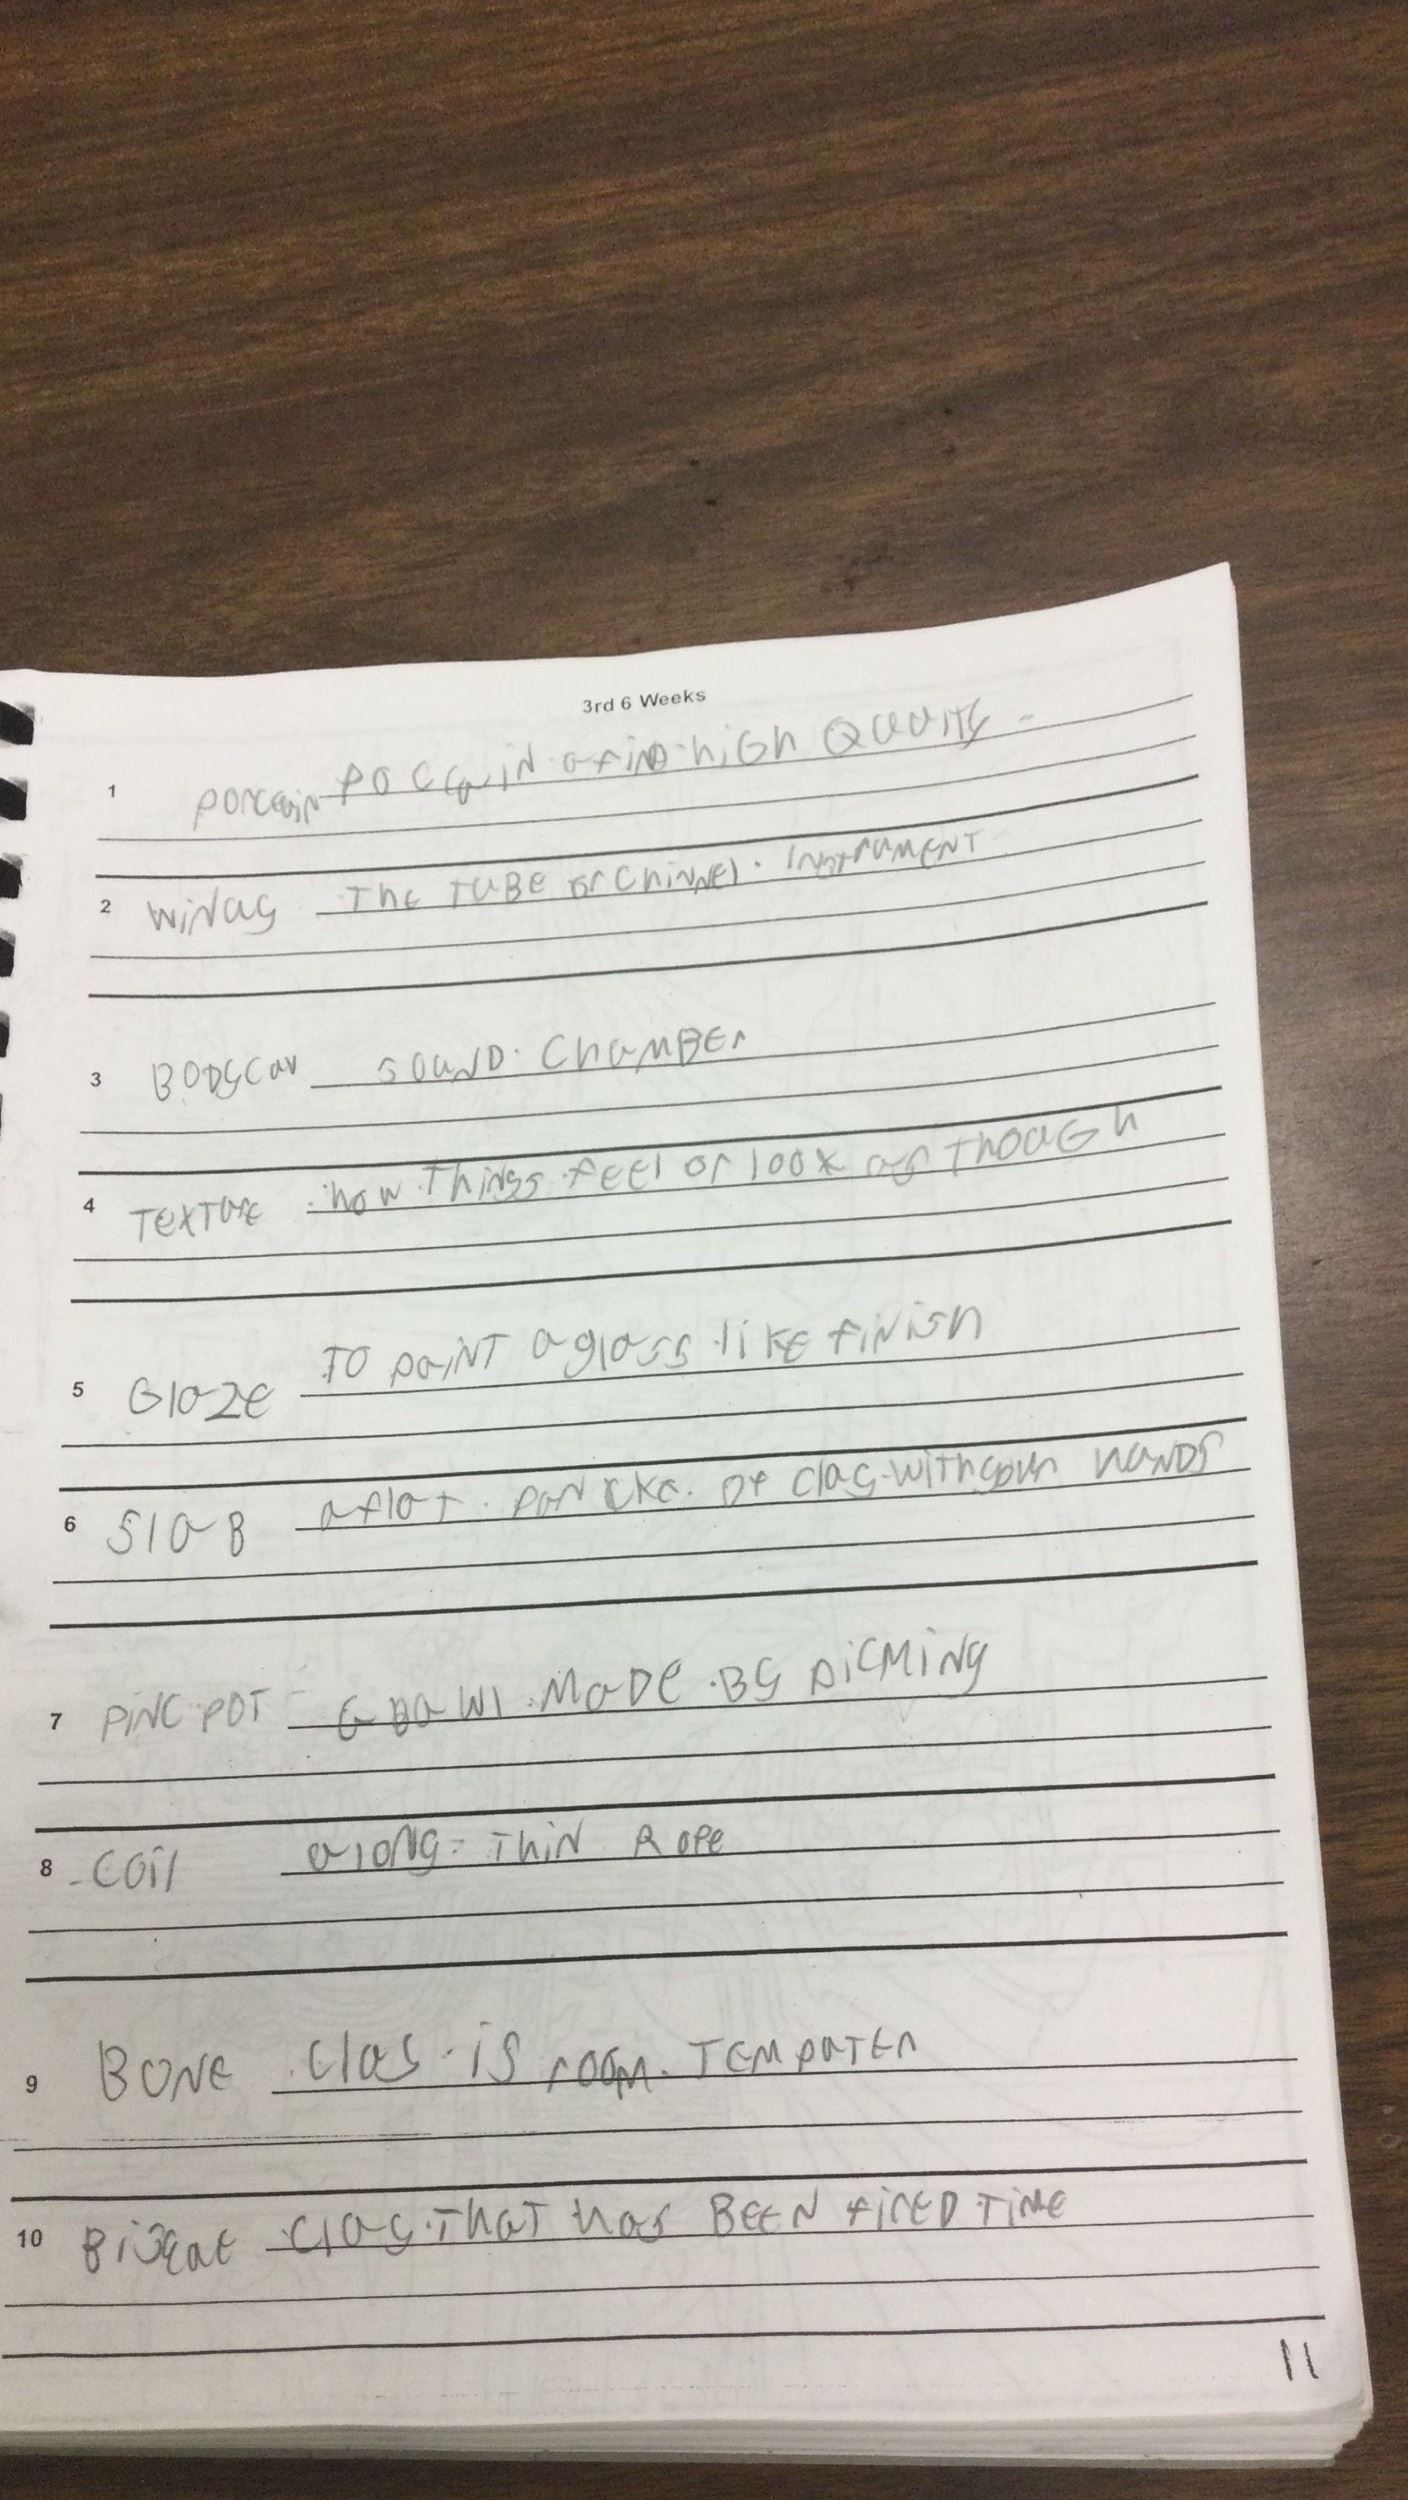 3rd 6 Weeks
1 Porcein Poccain a find high Quauity
2 Winay The TUBE or Chinnel. Instrument
3 BODYcav sound. ChamBer
4 Texture how things feel or look as Though
5 Glaze To paint a glass like finish
6 SlaB a flat. pancke. of clay with your hands
7 Pinc Pot made By picming
8 Coil a long Thin Rope
9 Bone clay is room. Tempater
10 clay That has Been fired Time
11